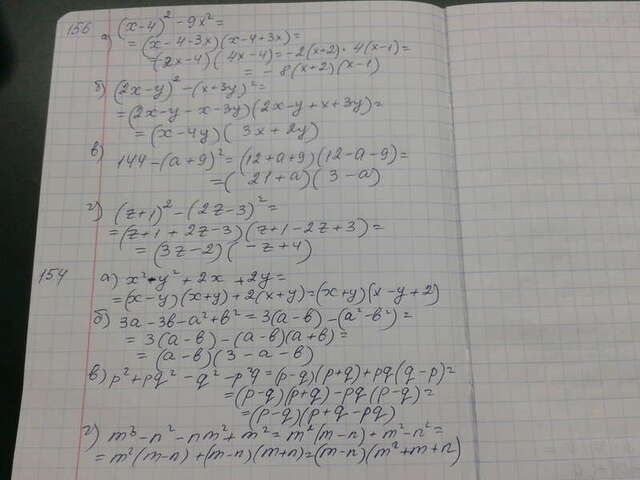 156
а) (x-4)² - 9x² =
= (x-4-3x)(x-4+3x) =
= (-2x-4)(4x-4) = -2(x+2)·4(x-1) =
= -8(x+2)(x-1)
б) (2x-y)² - (x+3y)² =
= (2x-y-x-3y)(2x-y+x+3y) =
= (x-4y)(3x+2y)
в) 144-(a+9)² = (12+a+9)(12-a-9) =
= (21+a)(3-a)
г) (z+1)² - (2z-3)² =
= (z+1+2z-3)(z+1-2z+3) =
= (3z-2)(-z+4)
154 а) x²-y²+2x+2y =
= (x-y)(x+y)+2(x+y) = (x+y)(x-y+2)
б) 3a-3b-a²+b² = 3(a-b)-(a²-b²) =
= 3(a-b)-(a-b)(a+b) =
= (a-b)(3-a-b)
в) p²+pq²-q²-p²q = (p-q)(p+q)+pq(q-p) =
= (p-q)(p+q)-pq(p-q) =
= (p-q)(p+q-pq)
г) m³-n²-nm²+m² = m²(m-n)+m²-n² =
= m²(m-n)+(m-n)(m+n) = (m-n)(m²+m+n)